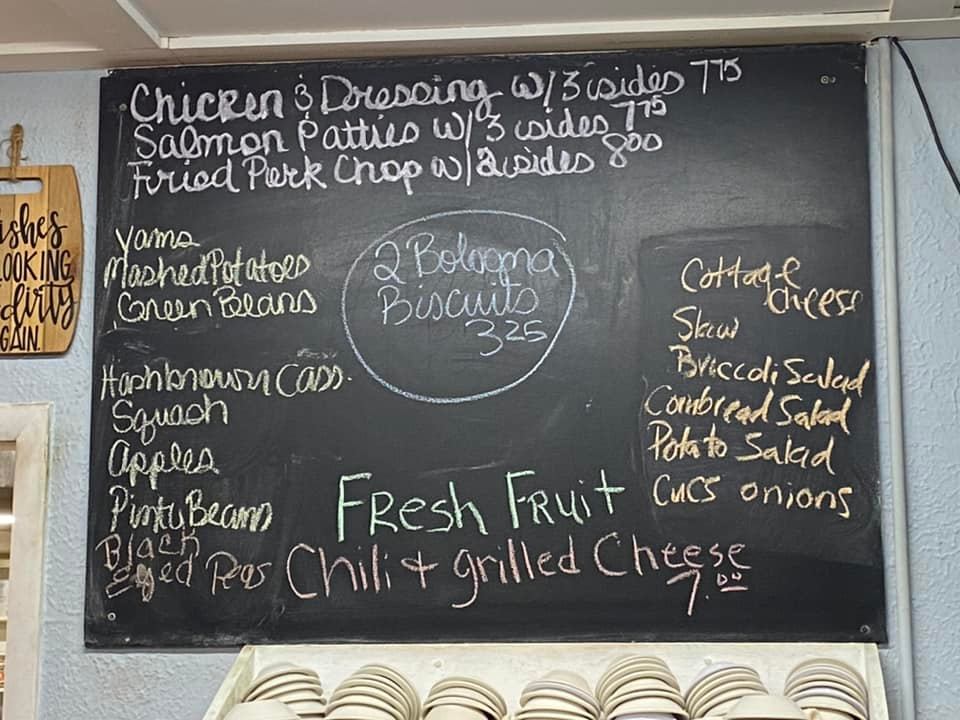 Chicken & Dressing w/3 sides 775
Salmon Patties w/ 3 sides 775
Fried Pork Chop w/2 sides 800
Yams
Mashed Potatoes
Green Beans
Hashbrown Cass.
Squash
Apples
Pinty Beans
Black
Eyed Peas
2 Bologna
Biscuits
325
Cottage
cheese
Slaw
Broccoli Salad
Cornbread Salad
Potato Salad
Cucs onions
Fresh Fruit
Chili & grilled Cheese
7.00
ishes
OOKING
dirty
GAIN.